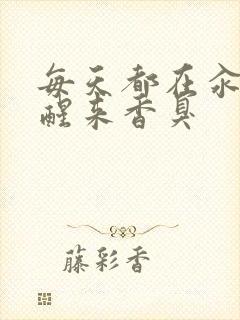 每天都在汆
醒来香臭
藤彩香